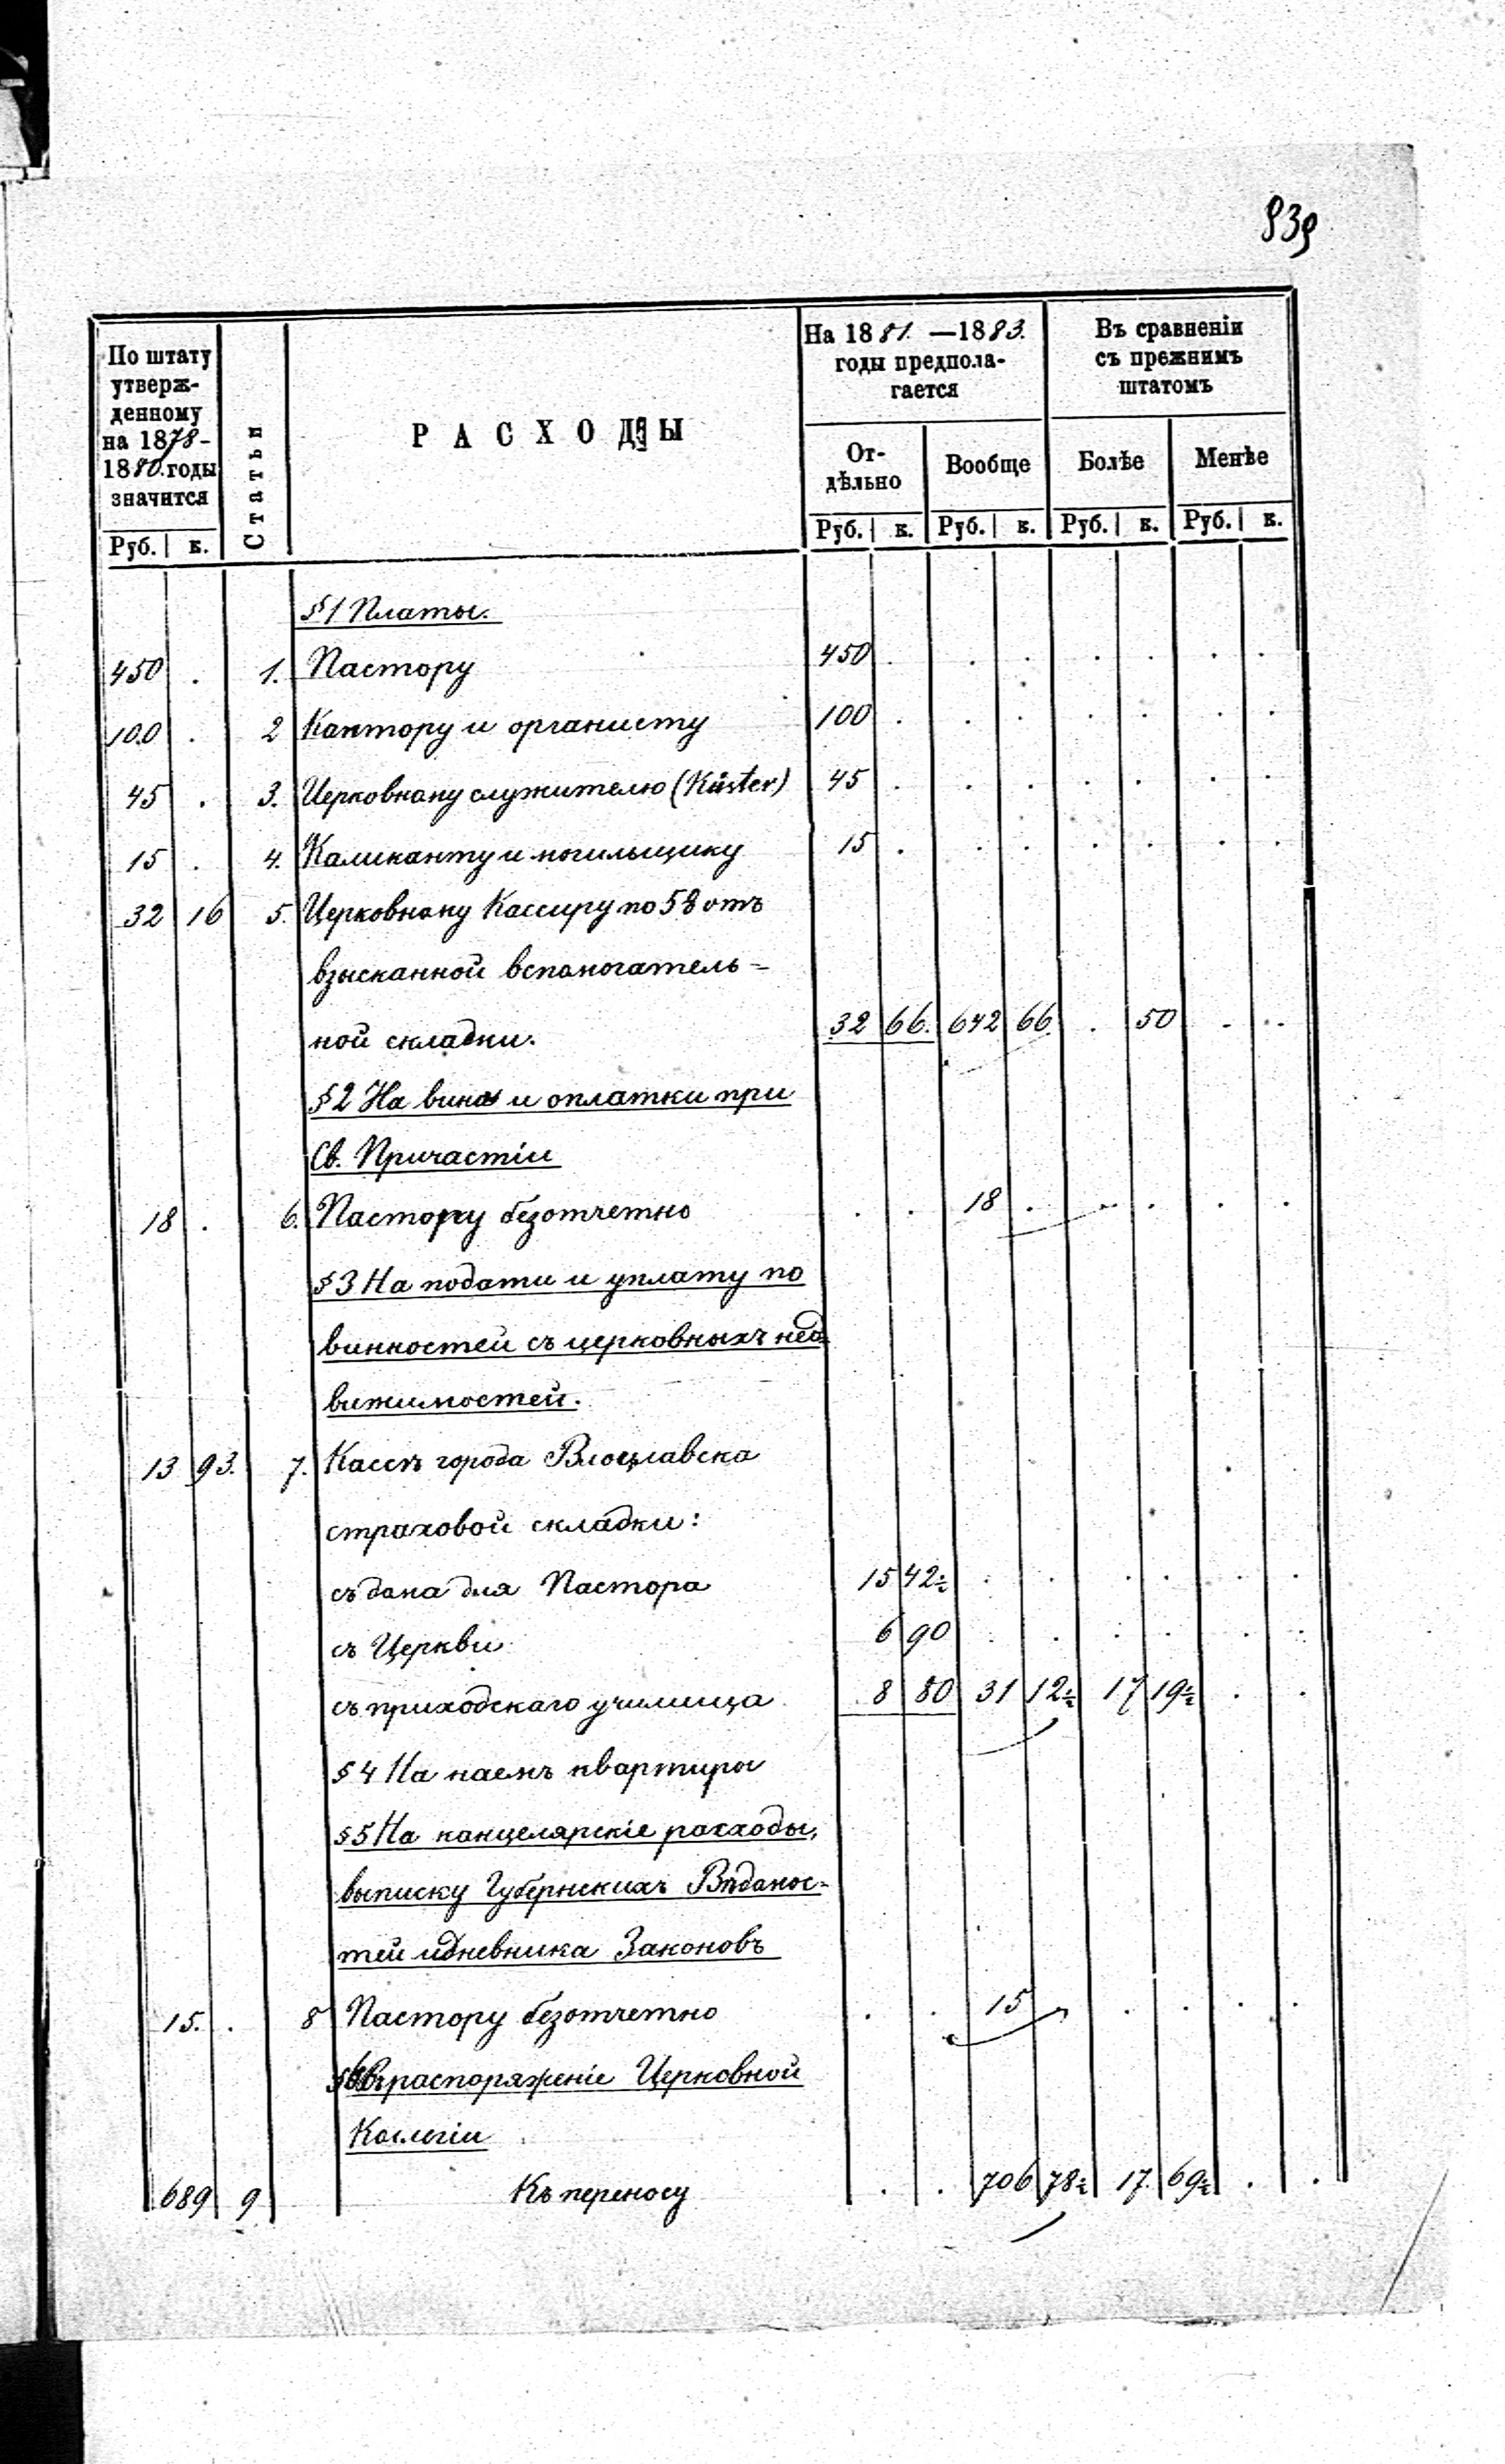 839
По штату утверж-денному на 1878-1880.годы значится
Статьи
РАСХОДЫ
На 1881.—1883. годы предпола-гается
Въ сравненіи съ прежнимъ штатомъ
От-дѣльно
Вообще
Болѣе
Менѣе
Руб. к. Руб. к. Руб. к. Руб. к. Руб. к.
§1 Платы.
450 . 1. Пастору 450 . . . . . . .
100 . 2 Кантору и органисту 100 . . . . . . .
45 . 3. Церковному служителю (Küster) 45 . . . . . . .
15 . 4. Каликанту и могильщику 15 . . . . . . .
32 16 5. Церковному Кассиру по 5% отъ
взысканной вспомогатель-
ной складки. 32 66. 642 66 . 50 . .
§2 На вино и оплатки при
Св. Причастіи
18 . 6. Пастору безотчетно . . 18 . . . . .
§3 На подати и уплату по
винностей съ церковныхъ нед
вижимостей.
13 93. 7. Кассѣ города Влоцлавска
страховой складки:
съ дома для Пастора 15 42½ . . . . . .
съ Церкви 6 90 . . . . . .
съ приходскаго училища 8 80 31 12½ 17 19½ . .
§4 На наемъ квартиры
§5 На канцелярскіе расходы,
выписку Губернскихъ Вѣдомос-
тей и дневника Законовъ
15. . 8 Пастору безотчетно . . 15 . . . .
§6 Въ распоряженіе Церковной
Коллегіи
689 9 Къ переносу . . 706 78½ 17. 69½ . .